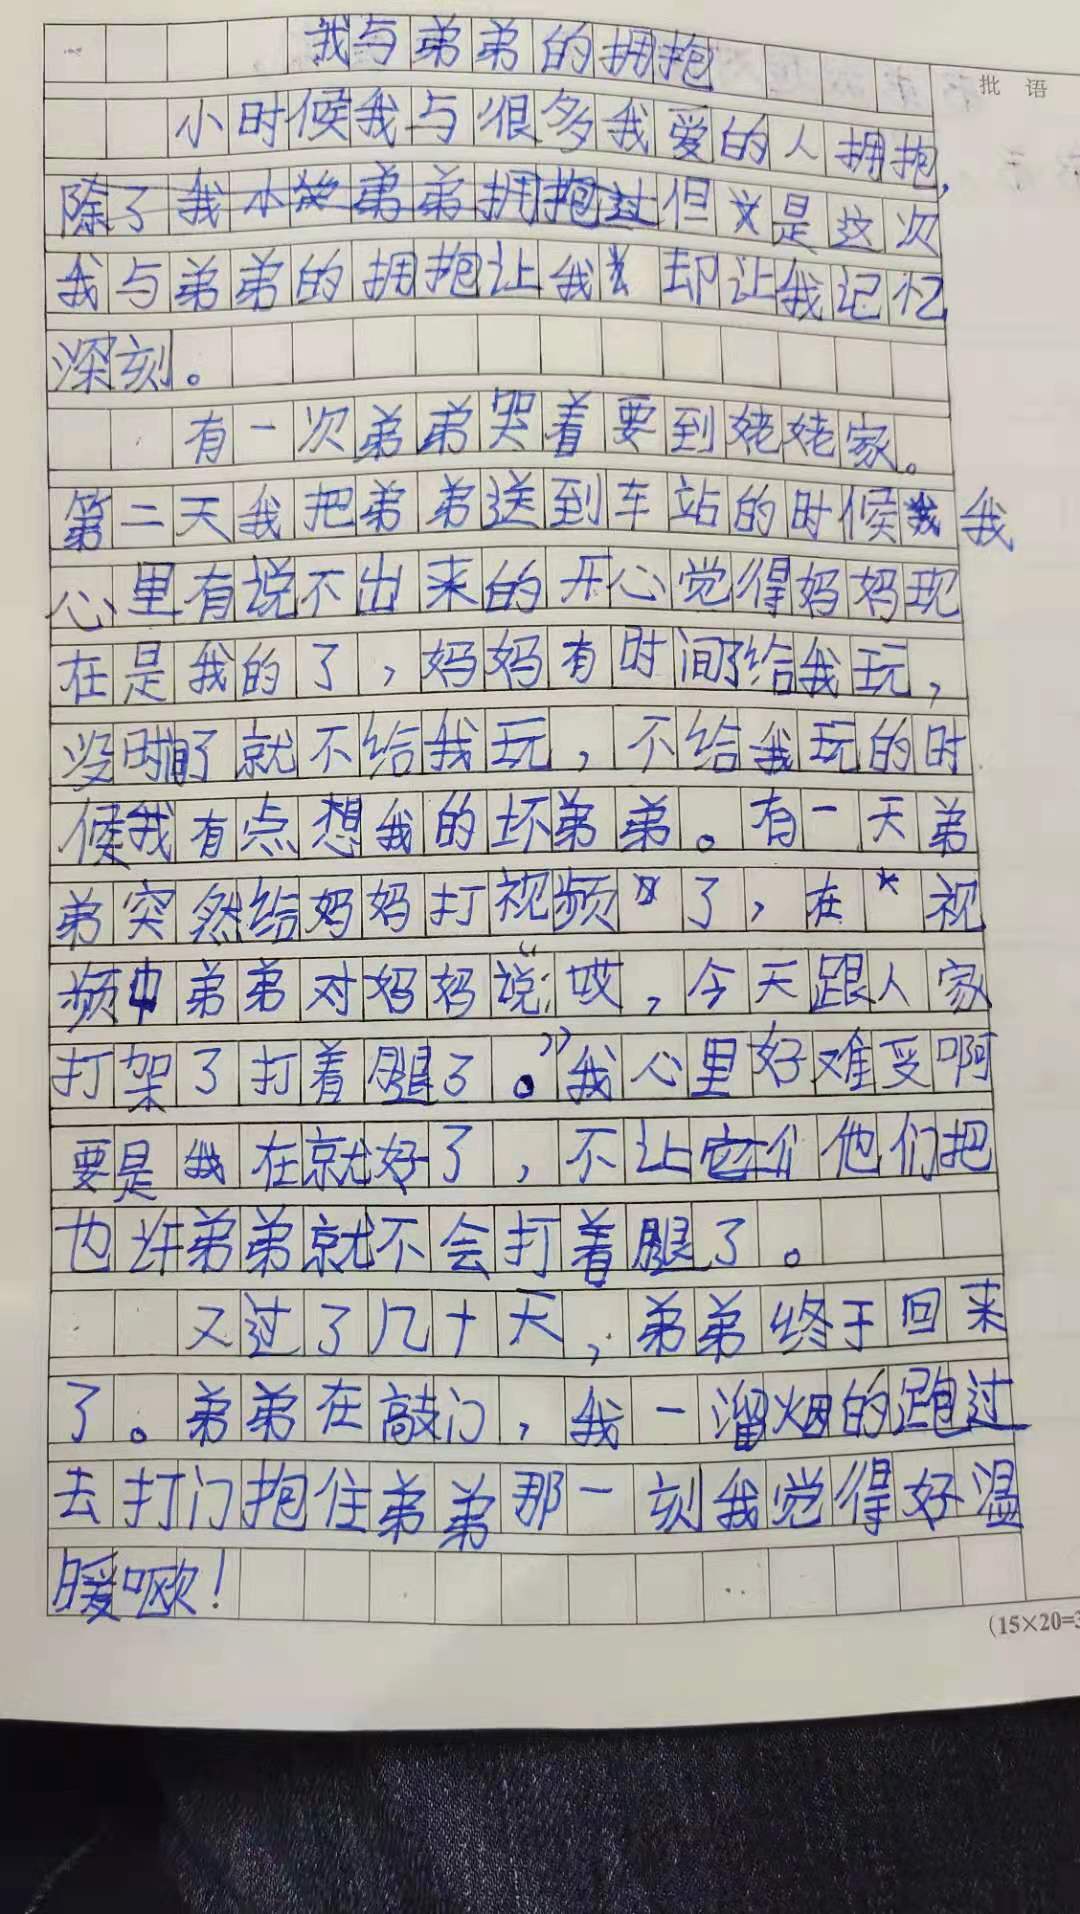 我与弟弟的拥抱
批语
小时候我与很多我爱的人拥抱,
除了我小弟弟拥抱过但是这次
我与弟弟的拥抱让我却让我记忆
深刻。
有一次弟弟哭着要到姥姥家。
第二天我把弟弟送到车站的时候我
心里有说不出来的开心觉得妈妈现
在是我的了,妈妈有时间了给我玩,
没时间了就不给我玩,不给我玩的时
候我有点想我的坏弟弟。有一天弟
弟突然给妈妈打视频了,在视
频中弟弟对妈妈说:“哎,今天跟人家
打架了打着腿了。”我心里好难受啊
要是我在就好了,不让它们他们把
也许弟弟就不会打着腿了。
又过了几十天,弟弟终于回来
了。弟弟在敲门,我一溜烟的跑过
去打门抱住弟弟那一刻我觉得好温
暖呕!
(15×20=3